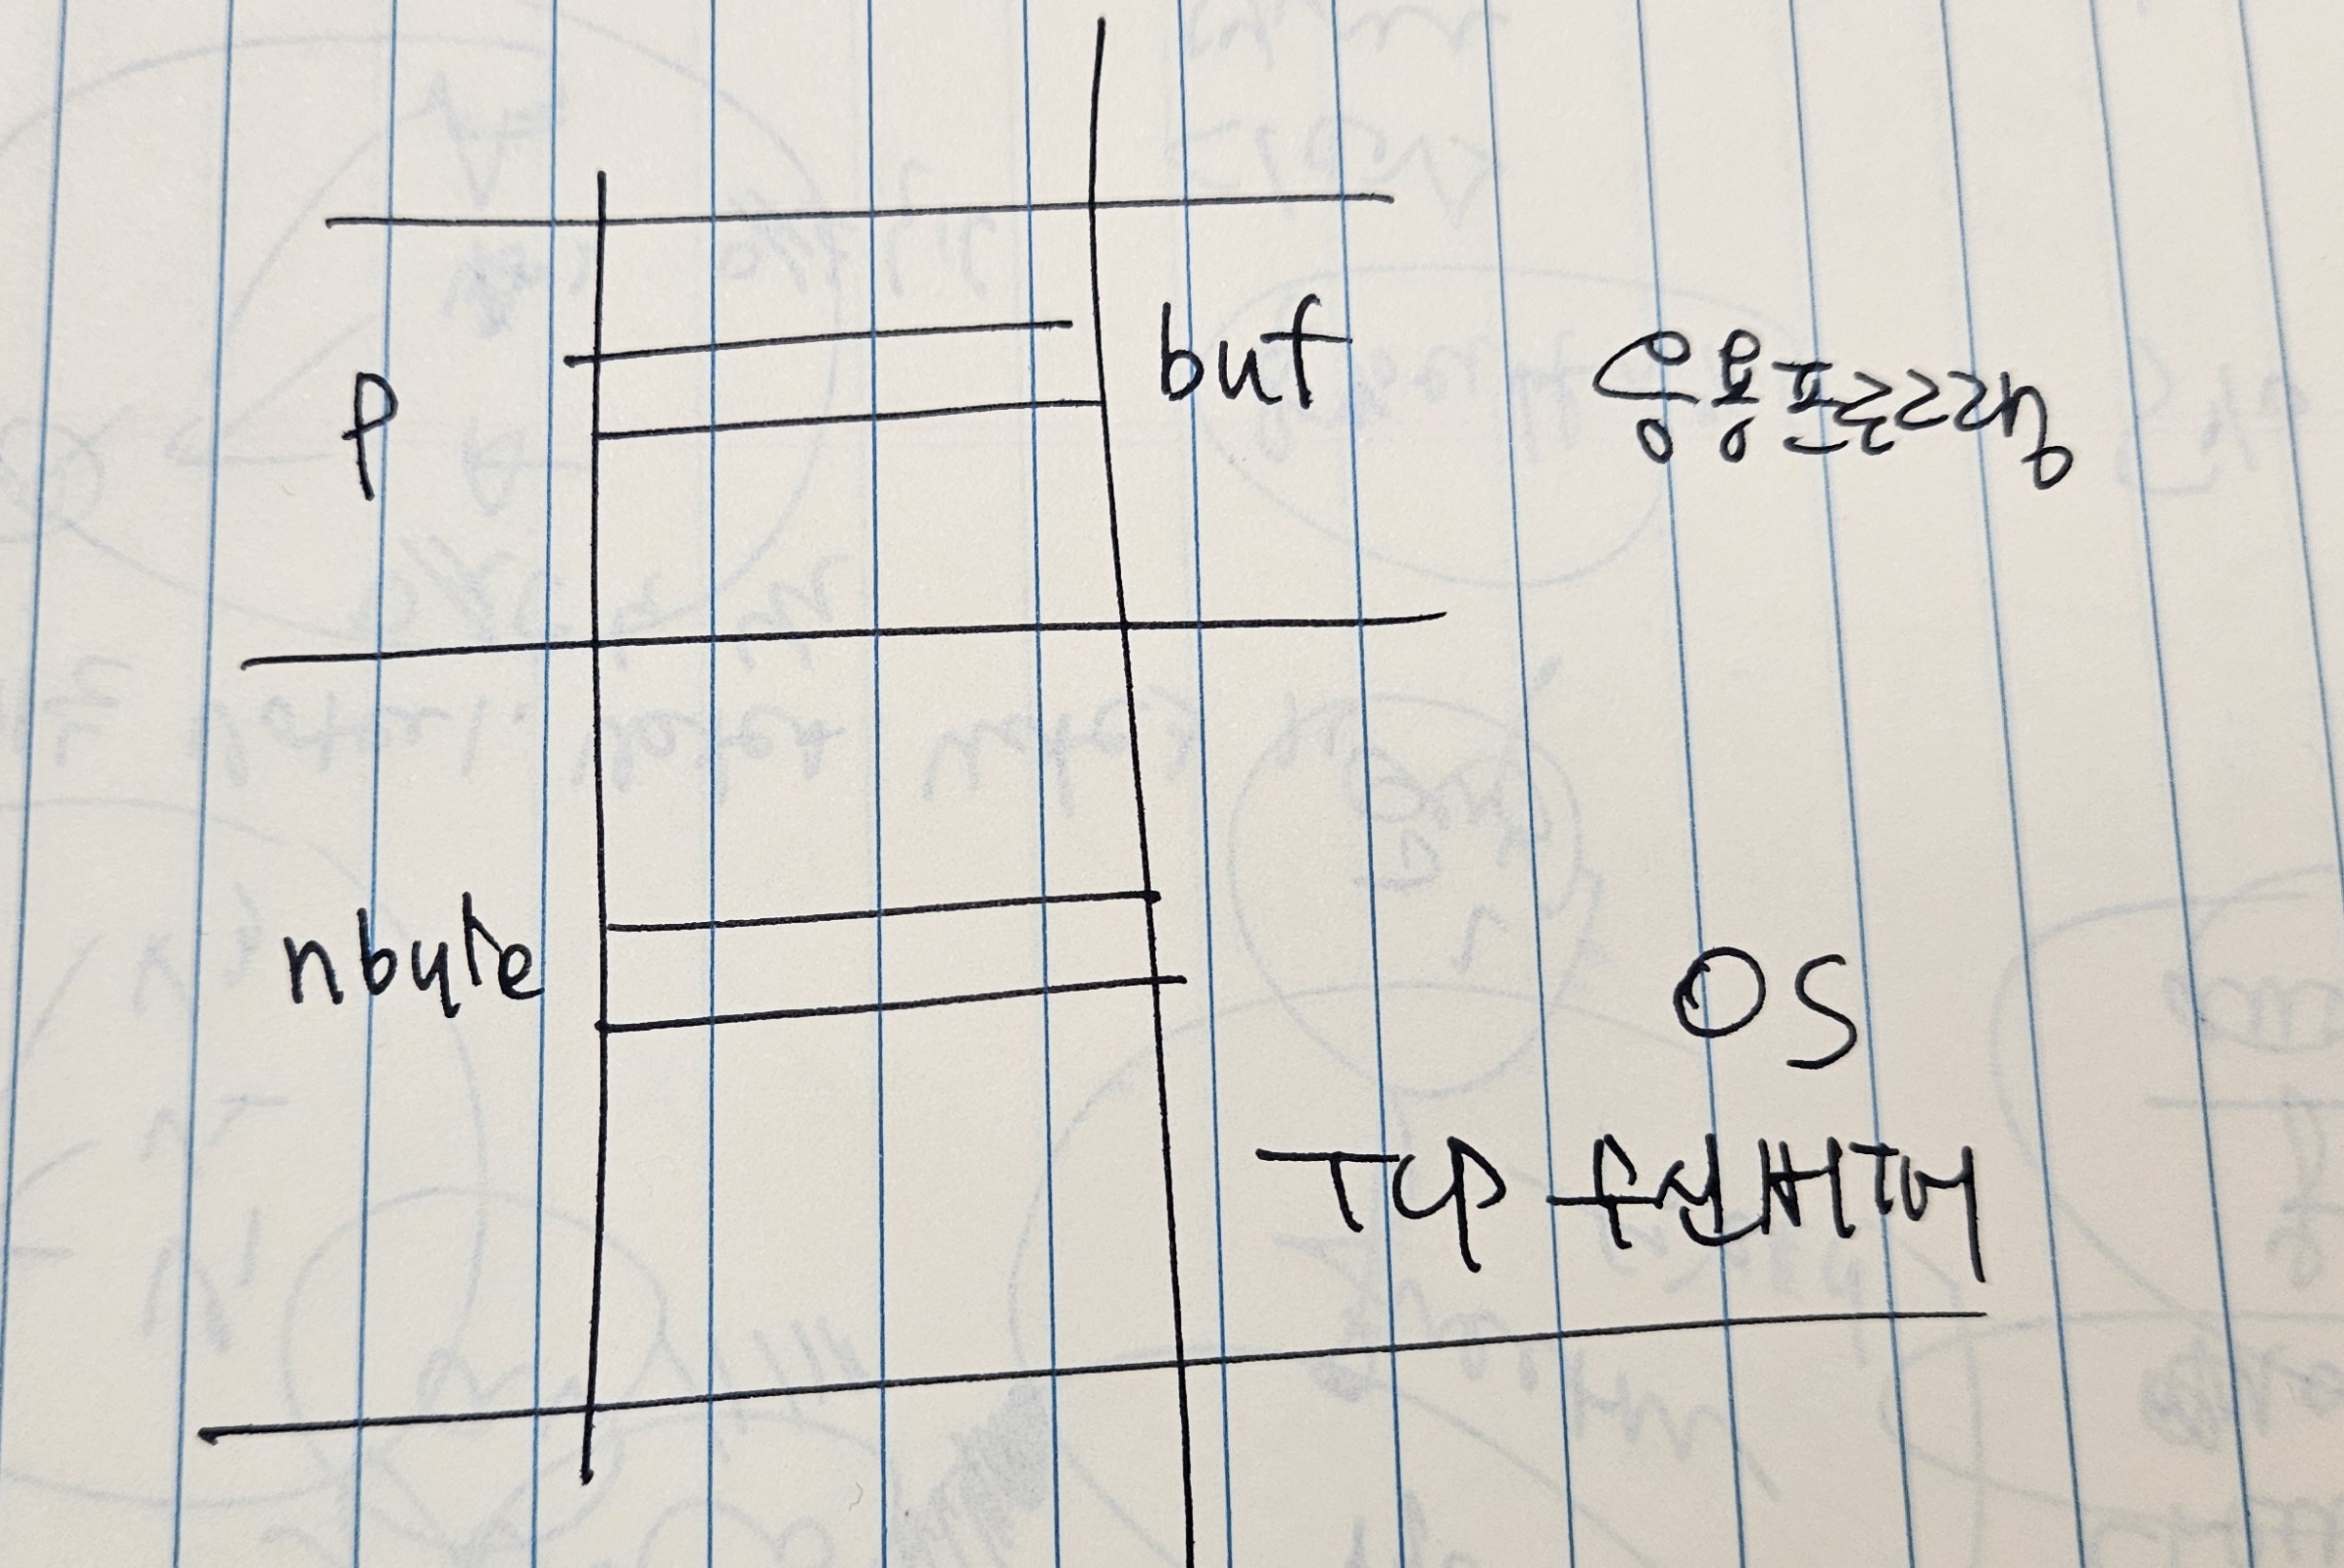 P
buf
응용프로그램
nbyte
OS
TCP 수신버퍼